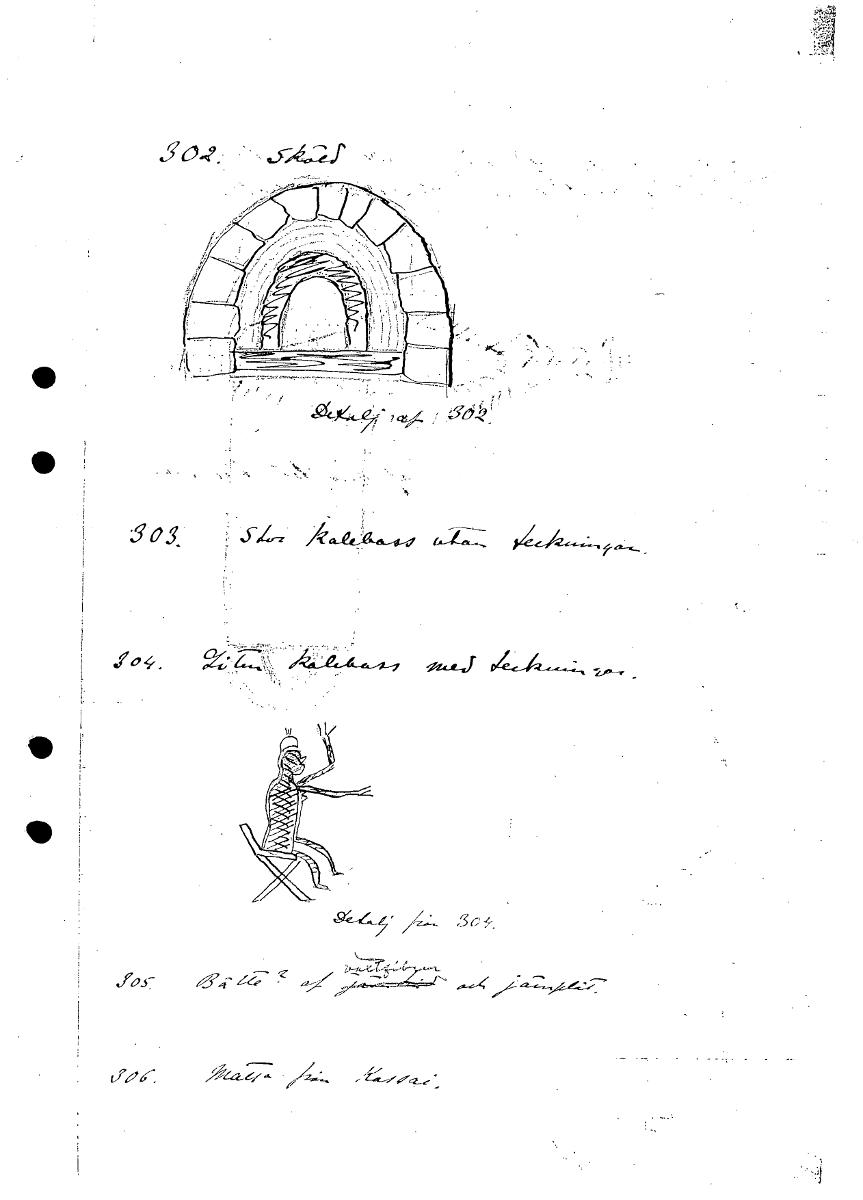 302. Sköld
Detalj af 302.
303. Stor kalebass utan teckningar.
304. Liten kalebass med teckningar.
Detalj från 304.
växtfibrer
305. Bälte? af och jämplåt.
306. Matta från Kassai.